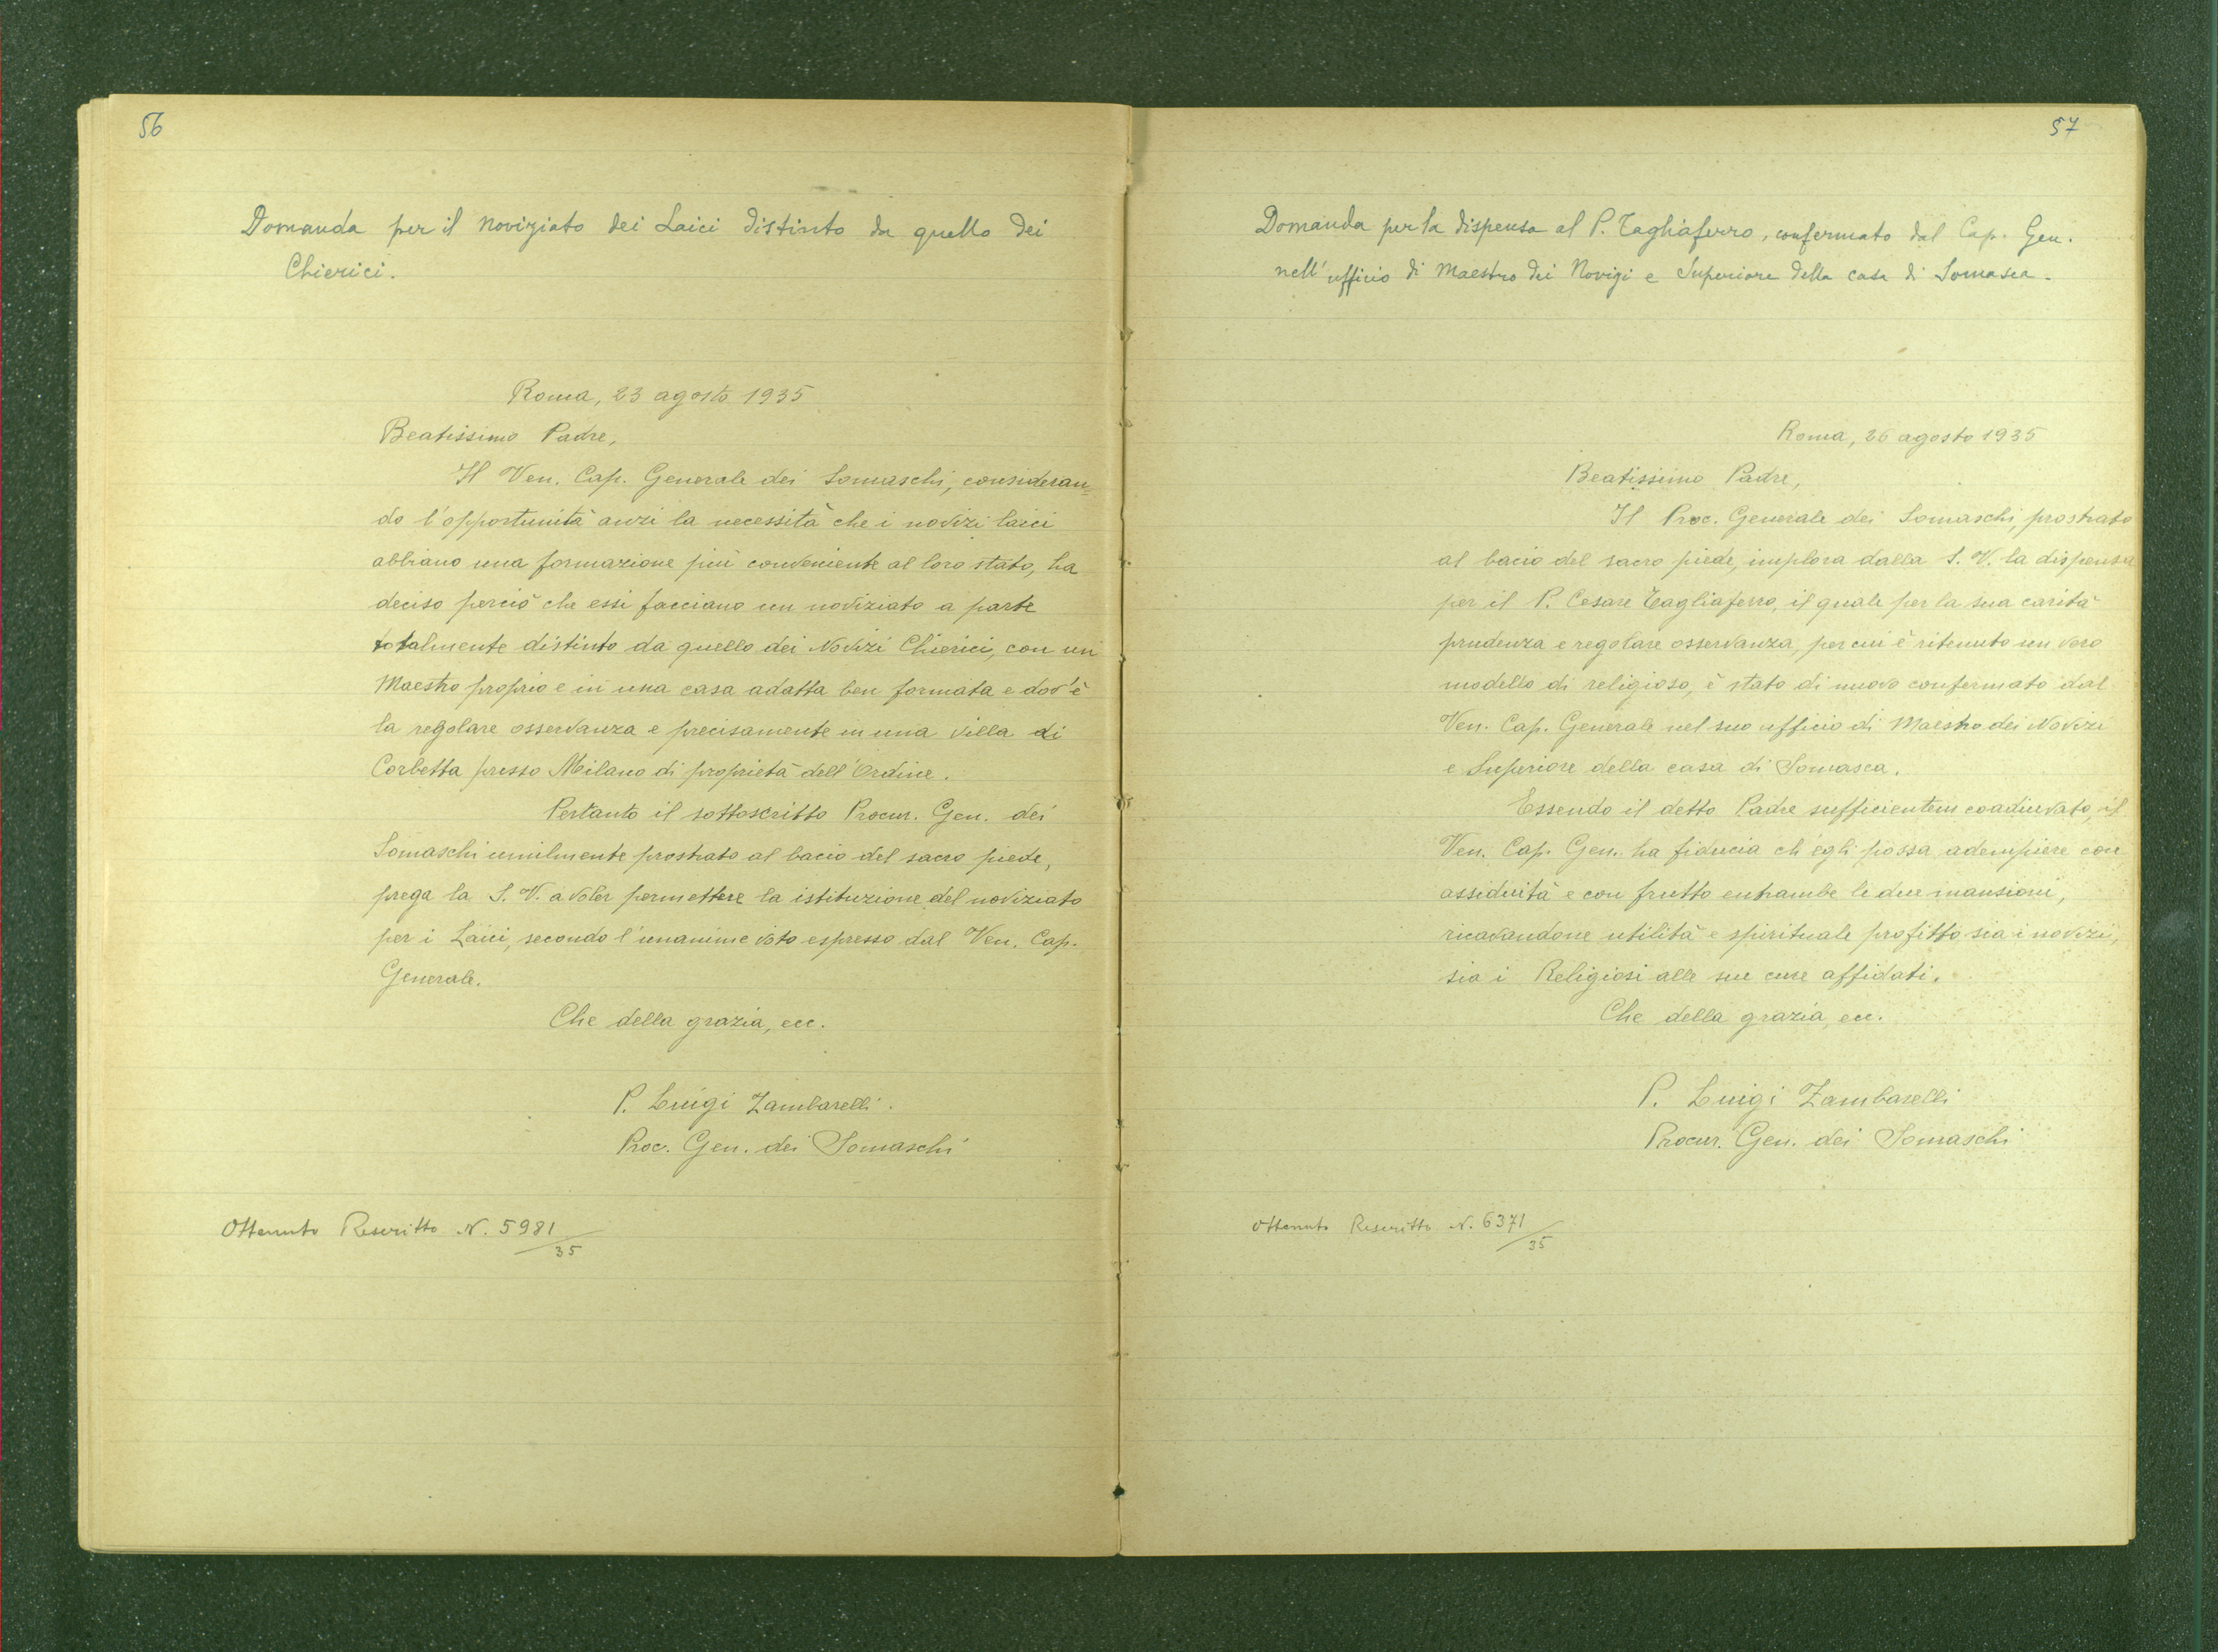 56
Domanda per il noviziato dei Laici distinto da quello dei
Chierici.
Roma, 23 agosto 1935
Beatissimo Padre,
Il Ven. Cap. Generale dei Somaschi, consideran=
do l'opportunità anzi la necessità che i novizi laici
abbiano una formazione più conveniente al loro stato, ha
deciso perciò che essi facciano un noviziato a parte
totalmente distinto da quello dei Novizi Chierici, con un
Maestro proprio e in una casa adatta ben formata e dov'è
la regolare osservanza e precisamente in una villa di
Corbetta presso Milano di proprietà dell'Ordine.
Pertanto il sottoscritto Procur. Gen. dei
Somaschi umilmente prostrato al bacio del sacro piede,
prega la S. V. a voler permettere la istituzione del noviziato
per i Laici, secondo l'unanime voto espresso dal Ven. Cap.
Generale.
Che della grazia, ecc.
P. Luigi Zambarelli.
Proc. Gen. dei Somaschi
Ottenuto Rescritto N. 5981/35
57
Domanda per la dispensa al P. Tagliaferro, confermato dal Cap. Gen.
nell'ufficio di Maestro dei Novizi e Superiore della casa di Somasca.
Roma, 26 agosto 1935
Beatissimo Padre,
Il Proc. Generale dei Somaschi, prostrato
al bacio del sacro piede, implora dalla S. V. la dispensa
per il P. Cesare Tagliaferro, il quale per la sua carità
prudenza e regolare osservanza, per cui è ritenuto un vero
modello di religioso, è stato di nuovo confermato dal
Ven. Cap. Generale nel suo ufficio di Maestro dei Novizi
e Superiore della casa di Somasca.
Essendo il detto Padre sufficientem coadiuvato, il
Ven. Cap. Gen. ha fiducia ch'egli possa adempiere con
assiduità e con frutto entrambe le due mansioni,
ricavandone utilità e spirituale profitto sia i novizi,
sia i Religiosi alle sue cure affidati.
Che della grazia, ecc.
P. Luigi Zambarelli
Procur. Gen. dei Somaschi
Ottenuto Rescritto N. 6371/35